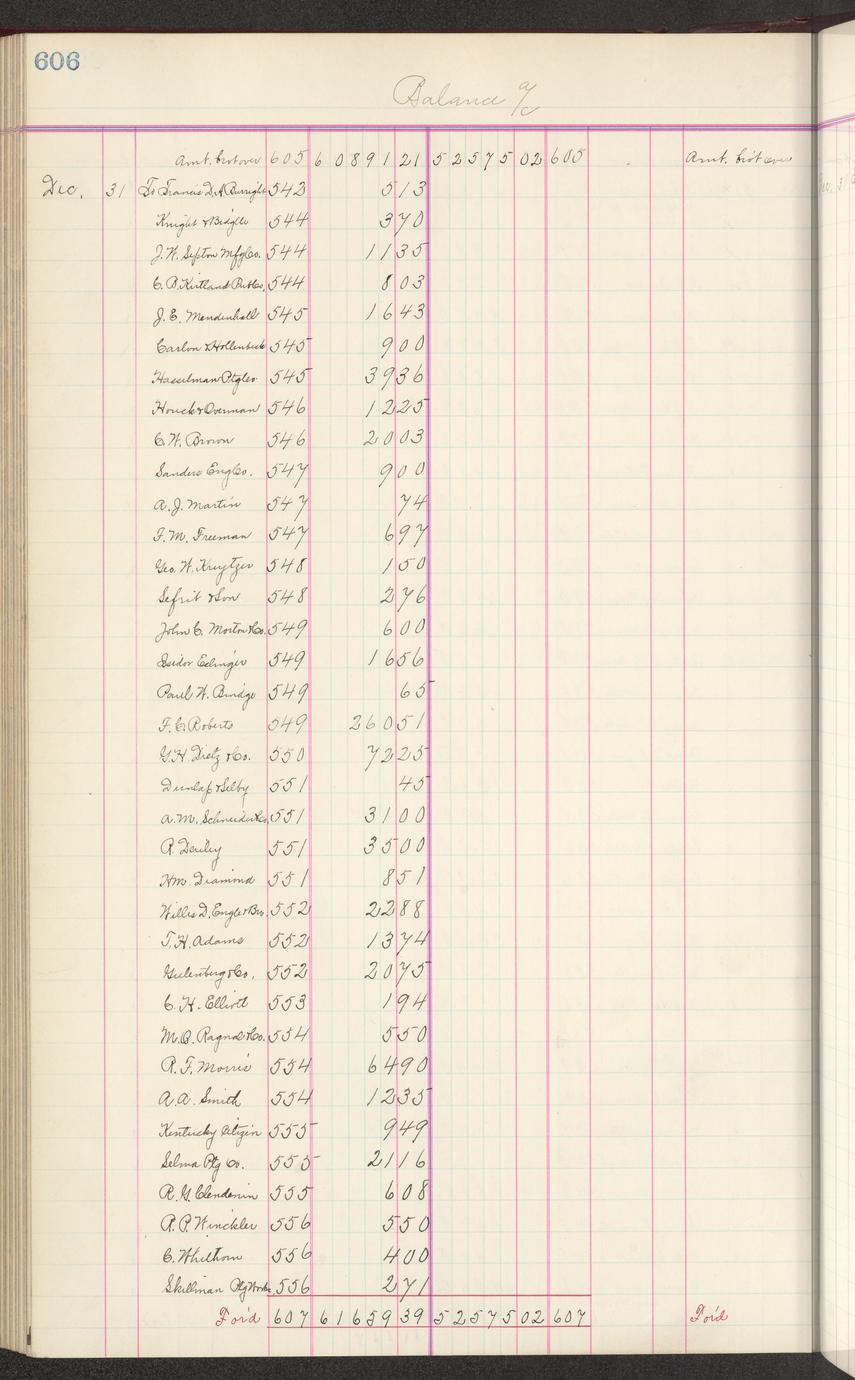 606
Balance a/c
Amt. brot over 605 60891 21 52575 02 605 Amt. brot over
Dec. 31 To Francis D. A. Burright 542 5 13
Knight & 544 3 70
J. W. Sefton Mfg Co. 544 11 35
C. B. Kirtland Pub Co. 544 8 03
J. E. Mendenhall 545 16 43
Carlon & Hollenbeck 545 9 00
Hasselman Ptg Co 545 39 36
Houck & Overman 546 12 25
C. W. Brown 546 20 03
Sanders Eng Co. 547 9 00
A. J. Martin 547 74
F. M. Freeman 547 6 97
Geo. W. 548 1 50
Sefrit & Son 548 2 76
John C. Morton & Co. 549 6 00
Isidor 549 16 56
Paul W. 549 65
F. C. Roberts 549 260 51
G. H. Dietz & Co. 550 72 25
Dunlap & Selby 551 45
A. M. Schneider & Co. 551 31 00
R. 551 35 00
Wm. Diamond 551 8 51
Willis D. Engle & Bro. 552 22 88
T. H. Adams 552 13 74
& Co. 552 20 75
C. H. Elliott 553 1 94
M. B. & Co. 554 5 50
R. F. Morris 554 64 90
A. A. Smith 554 12 35
Kentucky Citizen 555 9 49
Selma Ptg Co. 555 21 16
R. G. Clendenin 555 6 08
R. P. Winckler 556 5 50
C. Whitham 556 4 00
Skillman Ptg Works 556 2 71
For'd 607 61659 39 52575 02 607 For'd